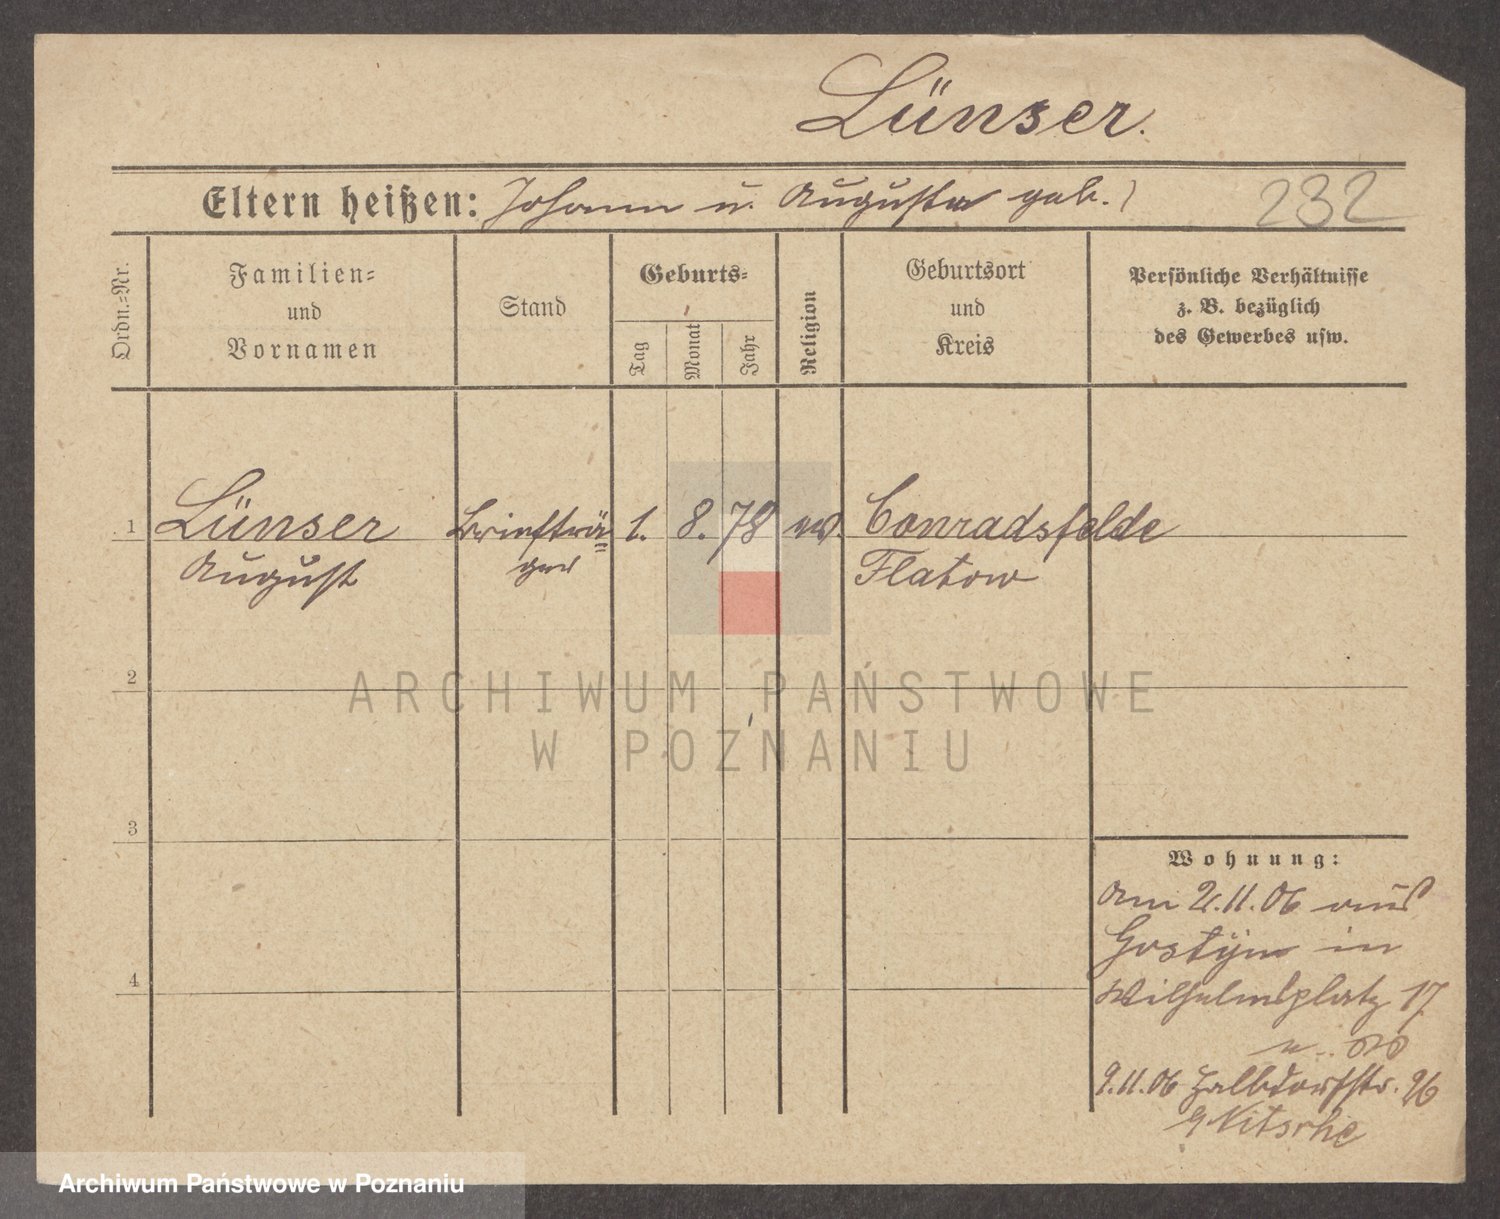 Lünser.
Eltern heißen: Johann u. Auguste geb. ?
232
Ordn.=Nr.
Familien=
und
Vornamen
Stand
Geburts=
Tag
Monat
Jahr
Religion
Geburtsort
und
Kreis
Persönliche Verhältnisse
z. B. bezüglich
des Gewerbes usw.
1 Lünser Briefträ= 1. 8. 78 ev. Conradsfelde
August ger Flatow
2
3
4
Wohnung:
Am 2.11.06 aus
Gostÿn in
Wilhelmsplatz 17
9.11.06 Halbdorfstr. 26
Nitsche
ARCHIWUM PAŃSTWOWE
W POZNANIU
Archiwum Państwowe w Poznaniu